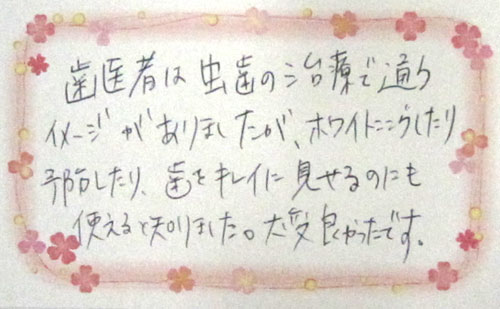 歯医者は虫歯の治療で通う
イメージがありましたが、ホワイトニングしたり
予防したり、歯をキレイに見せるのにも
使えると知りました。大変良かったです。